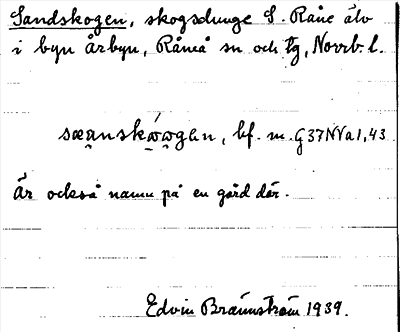 Sandskogen, skogsdunge S. Råne älv
i byn Årbyn, Råneå sn och tg, Norrb. l.
sæanskóogen, bf. m. G37NVa1,43
Är också namn på en gård där.
Edvin Brännström 1939.